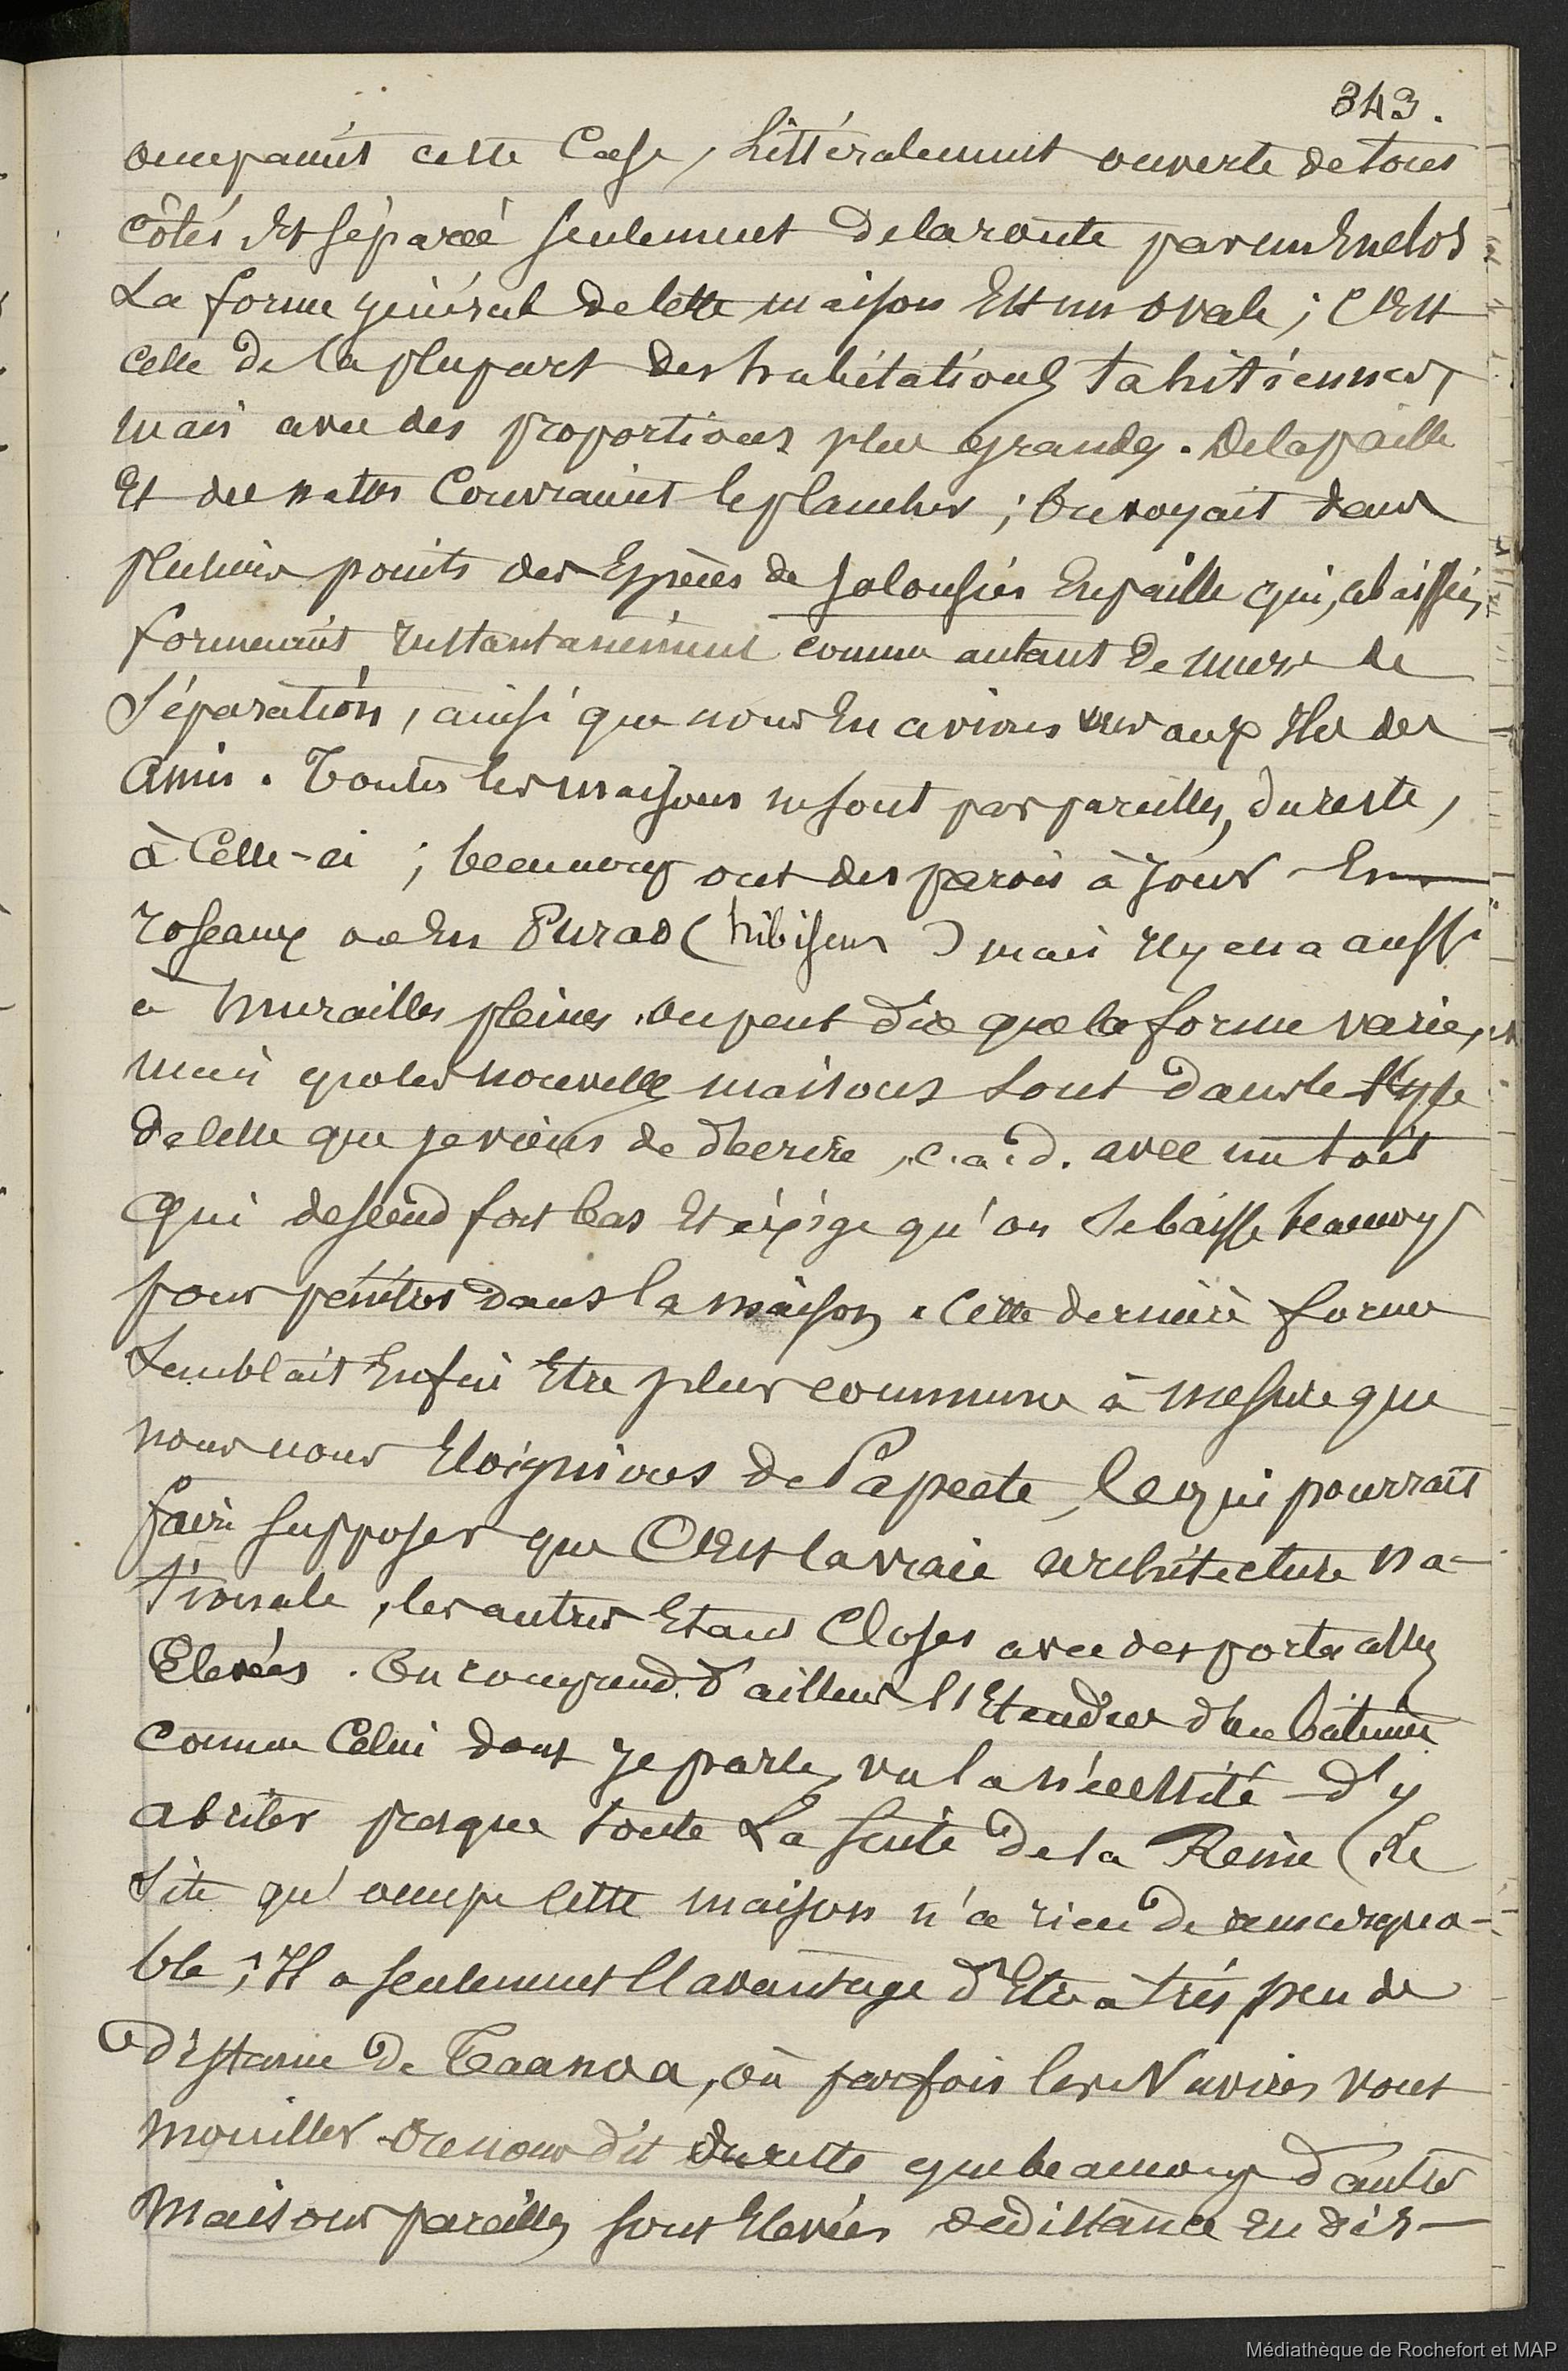 343.
occupaient cette Case, littéralement ouverte de tous
côtés Et séparée seulement de la route par un Enclos
La forme général de cette maison Est un ovale ; C'Est
celle de la plupart des habitations tahitiennes,
mais avec des proportions plus grandes. De la paille
Et des nattes Couvraient le plancher ; On voyait dans
plusieurs points des Espèces de Jalousies En paille qui, abaissées,
formaient Instantanément comme autant de murs de
Séparation, ainsi que nous En avions vus aux Iles des
Amis. Toutes les maisons ne sont pas pareilles, du reste,
à Celle-ci ; beaucoup ont des parois à Jour En
roseaux ou En Purao (hibiscus) mais Il y en a aussi
à murailles pleines. On peut dire que la forme varie,
mais que les nouvelles maisons sont dans le style
de Celle que je viens de décrire, c.à.d. avec un toit
qui descend fort bas Et éxige qu'on se baisse beaucoup
pour pénétrer dans la maison. Cette dernière forme
Semblait Enfin Etre plus commune à mesure que
nous nous Eloignions de Papeete, Ce qui pourrait
faire supposer que C'Est la vraie architecture na-
tionale, les autres Etant Closes avec des portes assez
Elevées. On comprend d'ailleurs l'Etendue d'un bâtiment
comme Celui dont Je parle, vu la nécessité d'y
abriter presque toute La suite de la Reine (Le
Site qu'occupe Cette maison n'a rien de remarqua-
ble ; Il a seulement l'avantage d'Etre à très peu de
distance de Taanoa, où parfois les Navires vont
mouiller On nous dit du reste que beaucoup d'autres
Maisons pareilles sont Elevées de distance En dis-
Médiathèque de Rochefort et MAP